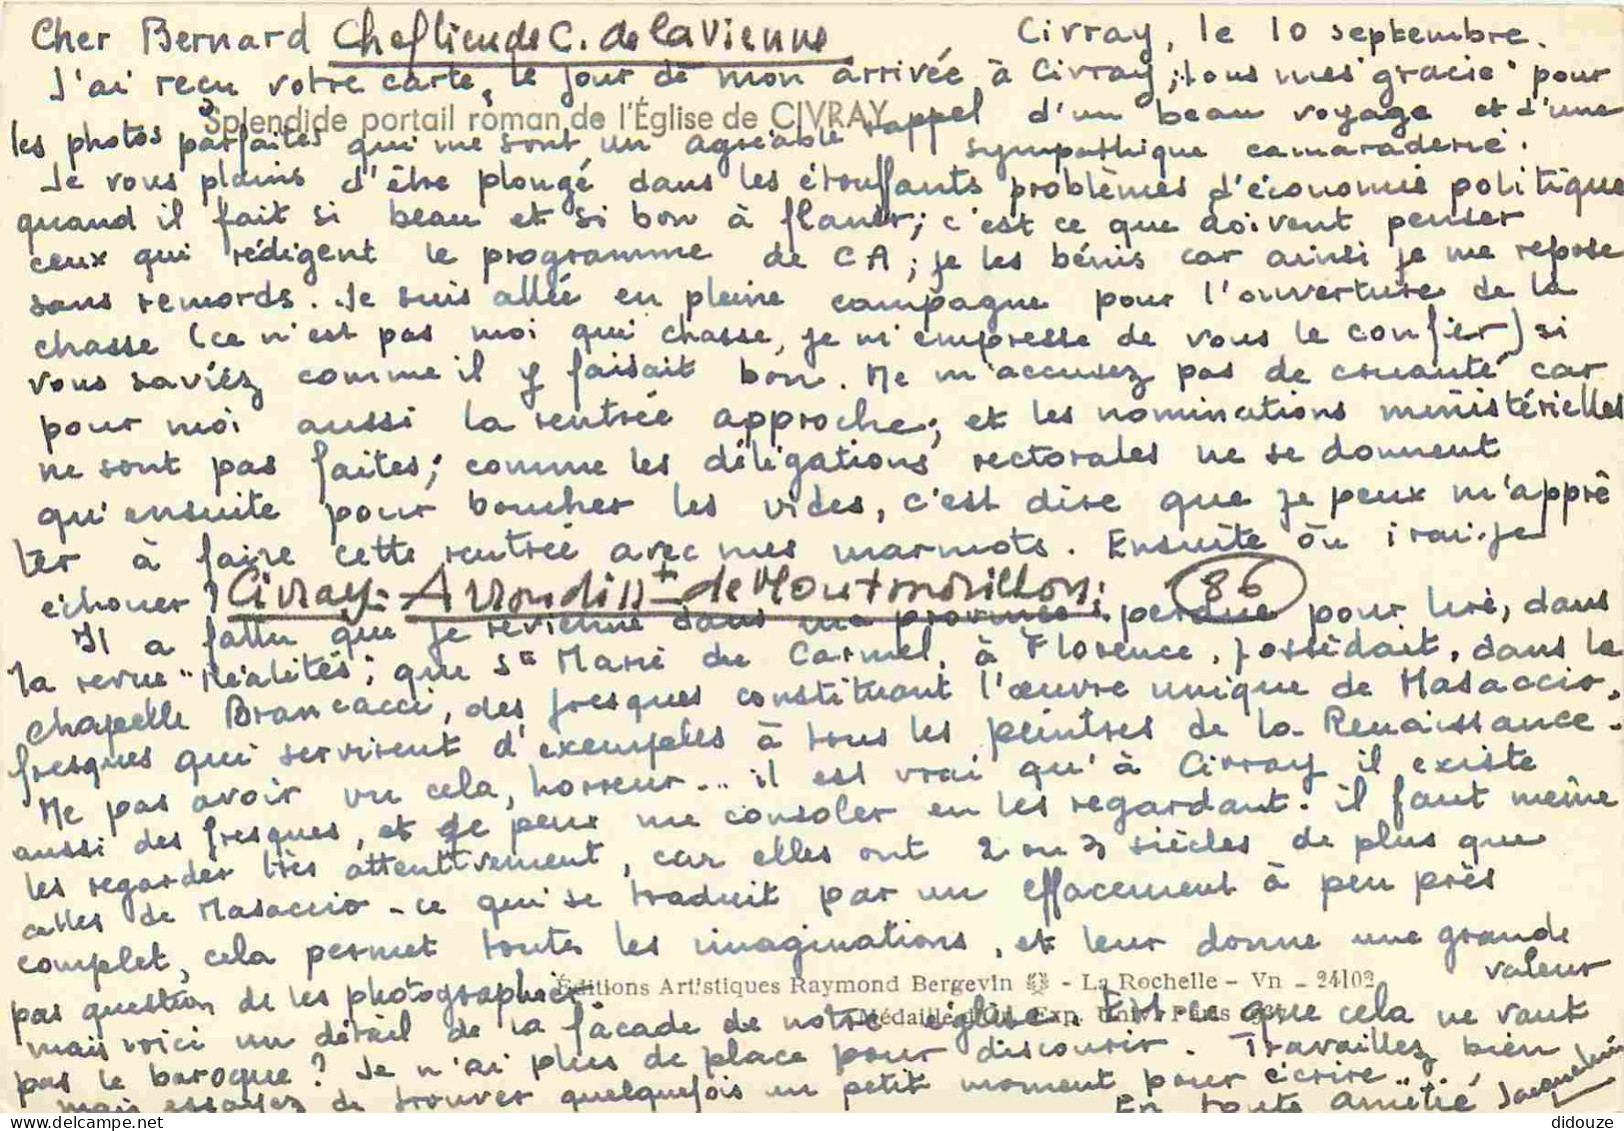 Cher Bernard Chef lieu de C. de la Vienne Civray, le 10 septembre.
J'ai reçu votre carte, le jour de mon arrivée à Civray; tous mes gracie pour
Splendide portail roman de l'Église de CIVRAY
les photos parfaites qui me sont un agréable rappel d'un beau voyage et d'une
sympathique camaraderie.
Je vous plains d'être plongé dans les étouffants problèmes d'économie politique
quand il fait si beau et si bon à flaner; c'est ce que doivent penser
ceux qui rédigent le programme de CA; je les bénis car ainsi je me repose
sans remords. Je suis allée en pleine campagne pour l'ouverture de la
chasse (ce n'est pas moi qui chasse, je m'empresse de vous le confier) si
vous saviez comme il y faisait bon. Ne m'accusez pas de cruauté car
pour moi aussi la rentrée approche; et les nominations ministérielles
ne sont pas faites; comme les délégations rectorales ne se donnent
qu'ensuite pour boucher les vides, c'est dire que je peux m'apprê
ter à faire cette rentrée avec mes marmots. Ensuite où irai-je
échouer? Civray: Arrondisst de Montmorillon: 86
Il a fallu que je revienne dans ma province perdue pour lire, dans
la revue "Réalités; que Ste Marie du Carmel, à Florence, possédait, dans la
chapelle Brancacci, des fresques constituant l'œuvre unique de Masaccio,
fresques qui servirent d'exemples à tous les peintres de la Renaissance.
Ne pas avoir vu cela, horreur... il est vrai qu'à Civray il existe
aussi des fresques, et je peux me consoler en les regardant. il faut même
les regarder très attentivement, car elles ont 2 ou 3 siècles de plus que
celles de Masaccio - ce qui se traduit par un effacement à peu près
complet, cela permet toutes les imaginations, et leur donne une grande
valeur
Éditions Artistiques Raymond Bergevin - La Rochelle - Vn - 24102
pas question de les photographier
Médaille d'Or, Exp. Paris
mais voici un détail de la façade de notre église. Est-ce que cela ne vaut
pas le baroque? Je n'ai plus de place pour discourir. Travaillez bien
mais essayez de trouver quelquefois un petit moment pour écrire..
En toute amitié, Jacqueline
didouze